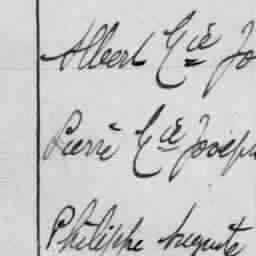 Albert Cie Jo
Pierre Cie Joseph
Philippe Auguste